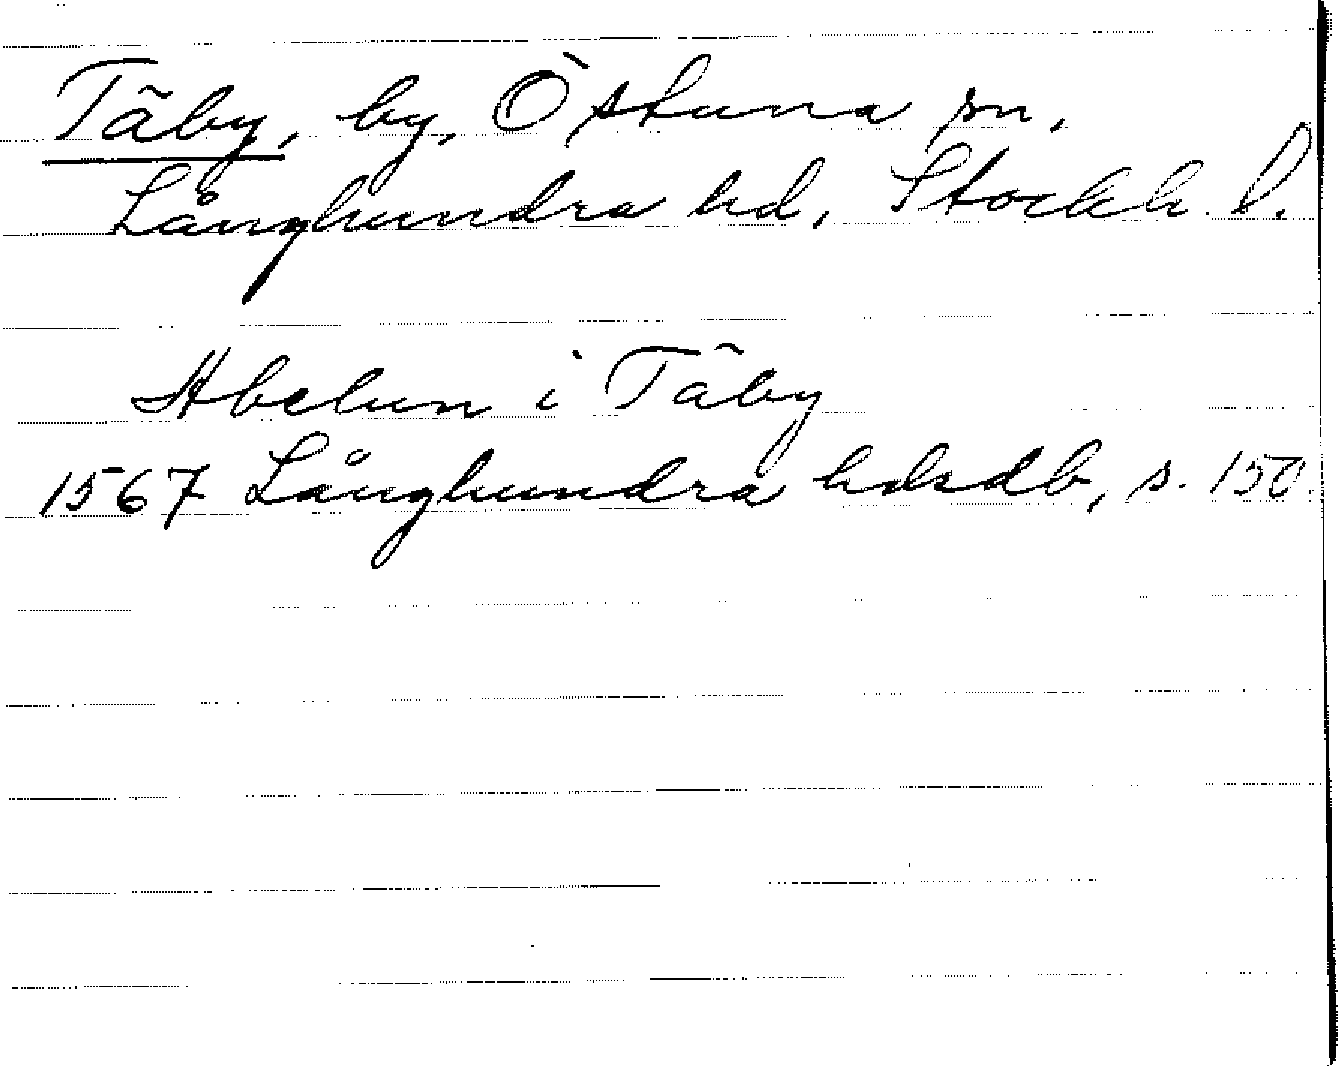 Täby, by, Östuna sn,
Långhundra hd, Stockh. l.
Abelun i Täby
1567 Långhundra hdsdb, s. 150